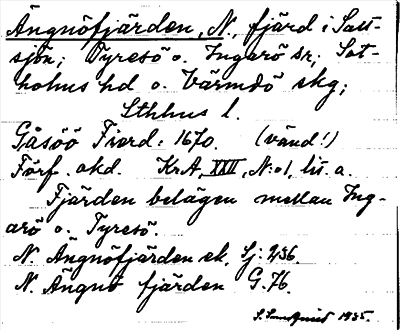 Ängnöfjärden, N., fjärd i Salt-
sjön; Tyresö o. Ingarö snr; Sot-
holms hd o. Värmdö skg;
Sthlms l.
Gåsöö Fierd: 1670. (vänd!)
Förf. okd. KrA, XXII, N:o1, lit. a.
Fjärden belägen mellan Ing-
arö o. Tyresö.
N. Ängnöfjärden ek. Sj: 236.
N. Ängnö fjärden G. 76.
1935.